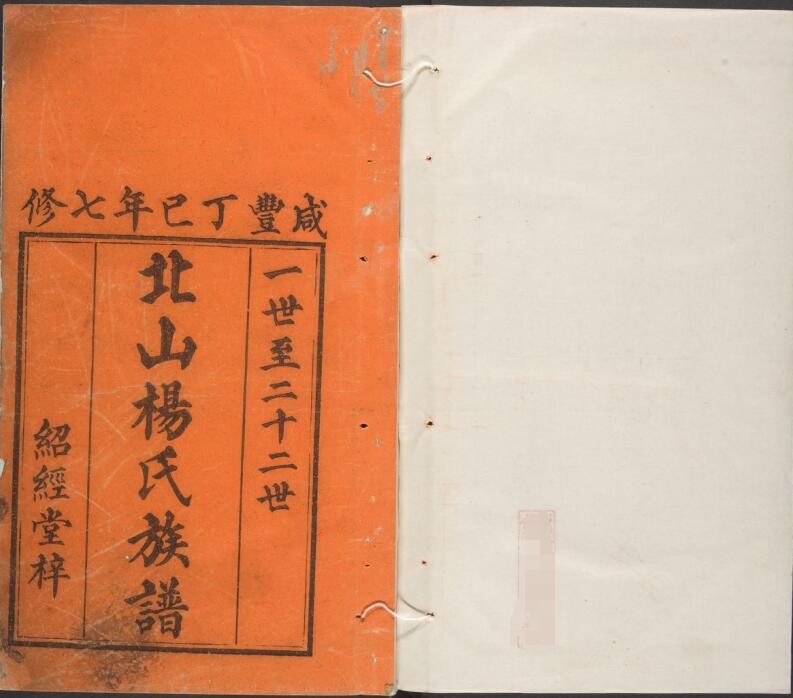 咸豐丁巳年七修
一世至二十二世
北山楊氏族譜
紹經堂梓